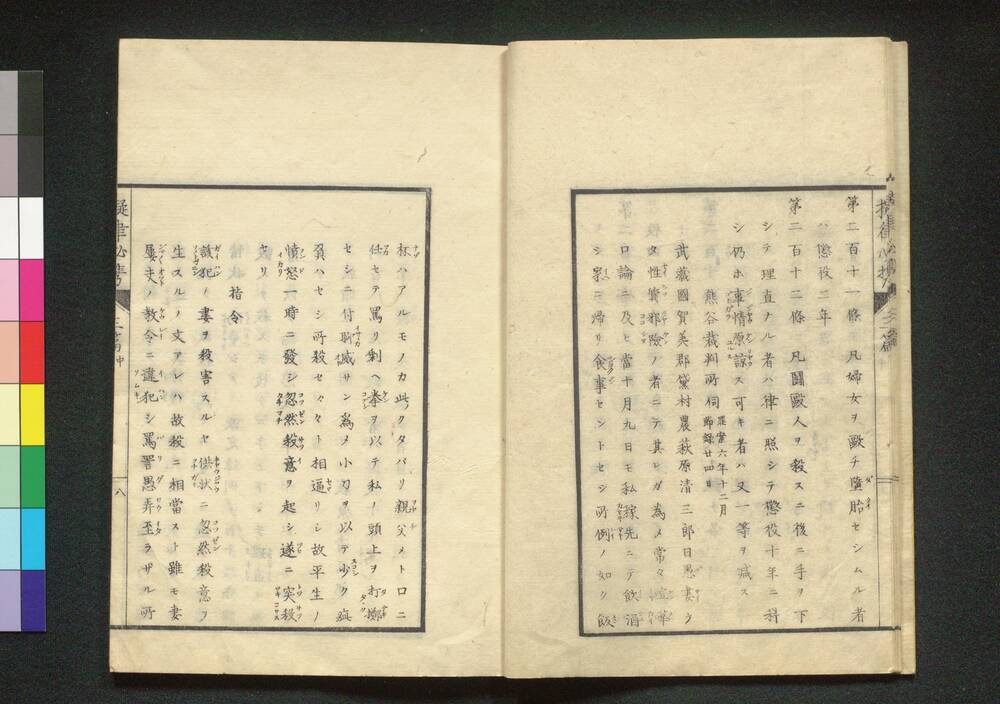 第二百十一條　凡婦女ヲ毆チ墮胎セシムル者
ハ懲役二年
第二百十二條　凡鬪毆人ヲ殺スニ後ニ手ヲ下
シテ理直ナル者ハ律ニ照シテ懲役十年ニ科
シ仍ホ事情原諒ス可キ者ハ又一等ヲ減ス
熊谷裁判所伺 六年十二月節録廿四日
武藏國賀美郡黛村農萩原清三郎日愚妻う
タ性質邪險ノ者ニテ其レガ為メ常々喧嘩
口論ニ及ヒ當十月九日モ私稼先ニテ飲酒
シ家ニ歸リ食事セントセシ所例ノ如ク飯
杯ハアルモノカ此クタバリ親父メトロニ
任セテ罵リ剰ヘ拳ヲ以テ私ノ頭上ヲ打擲
セシニ付威サン為メ小刀ヲ以テ少ク疵
負ハセシ所殺セ々々ト相逼リシ故平生ノ
憤怒一時ニ發シ忽然殺意ヲ起シ遂ニ実殺
セリ
指令
該犯ノ妻ヲ殺害スルヤ供狀ニ忽然殺意ヲ
生スルノ文アレハ故殺ニ相當スト雖モ妻
屢夫ノ教令ニ違犯シ罵詈愚弄至ラザル所
擬律必携
二篇 中
八